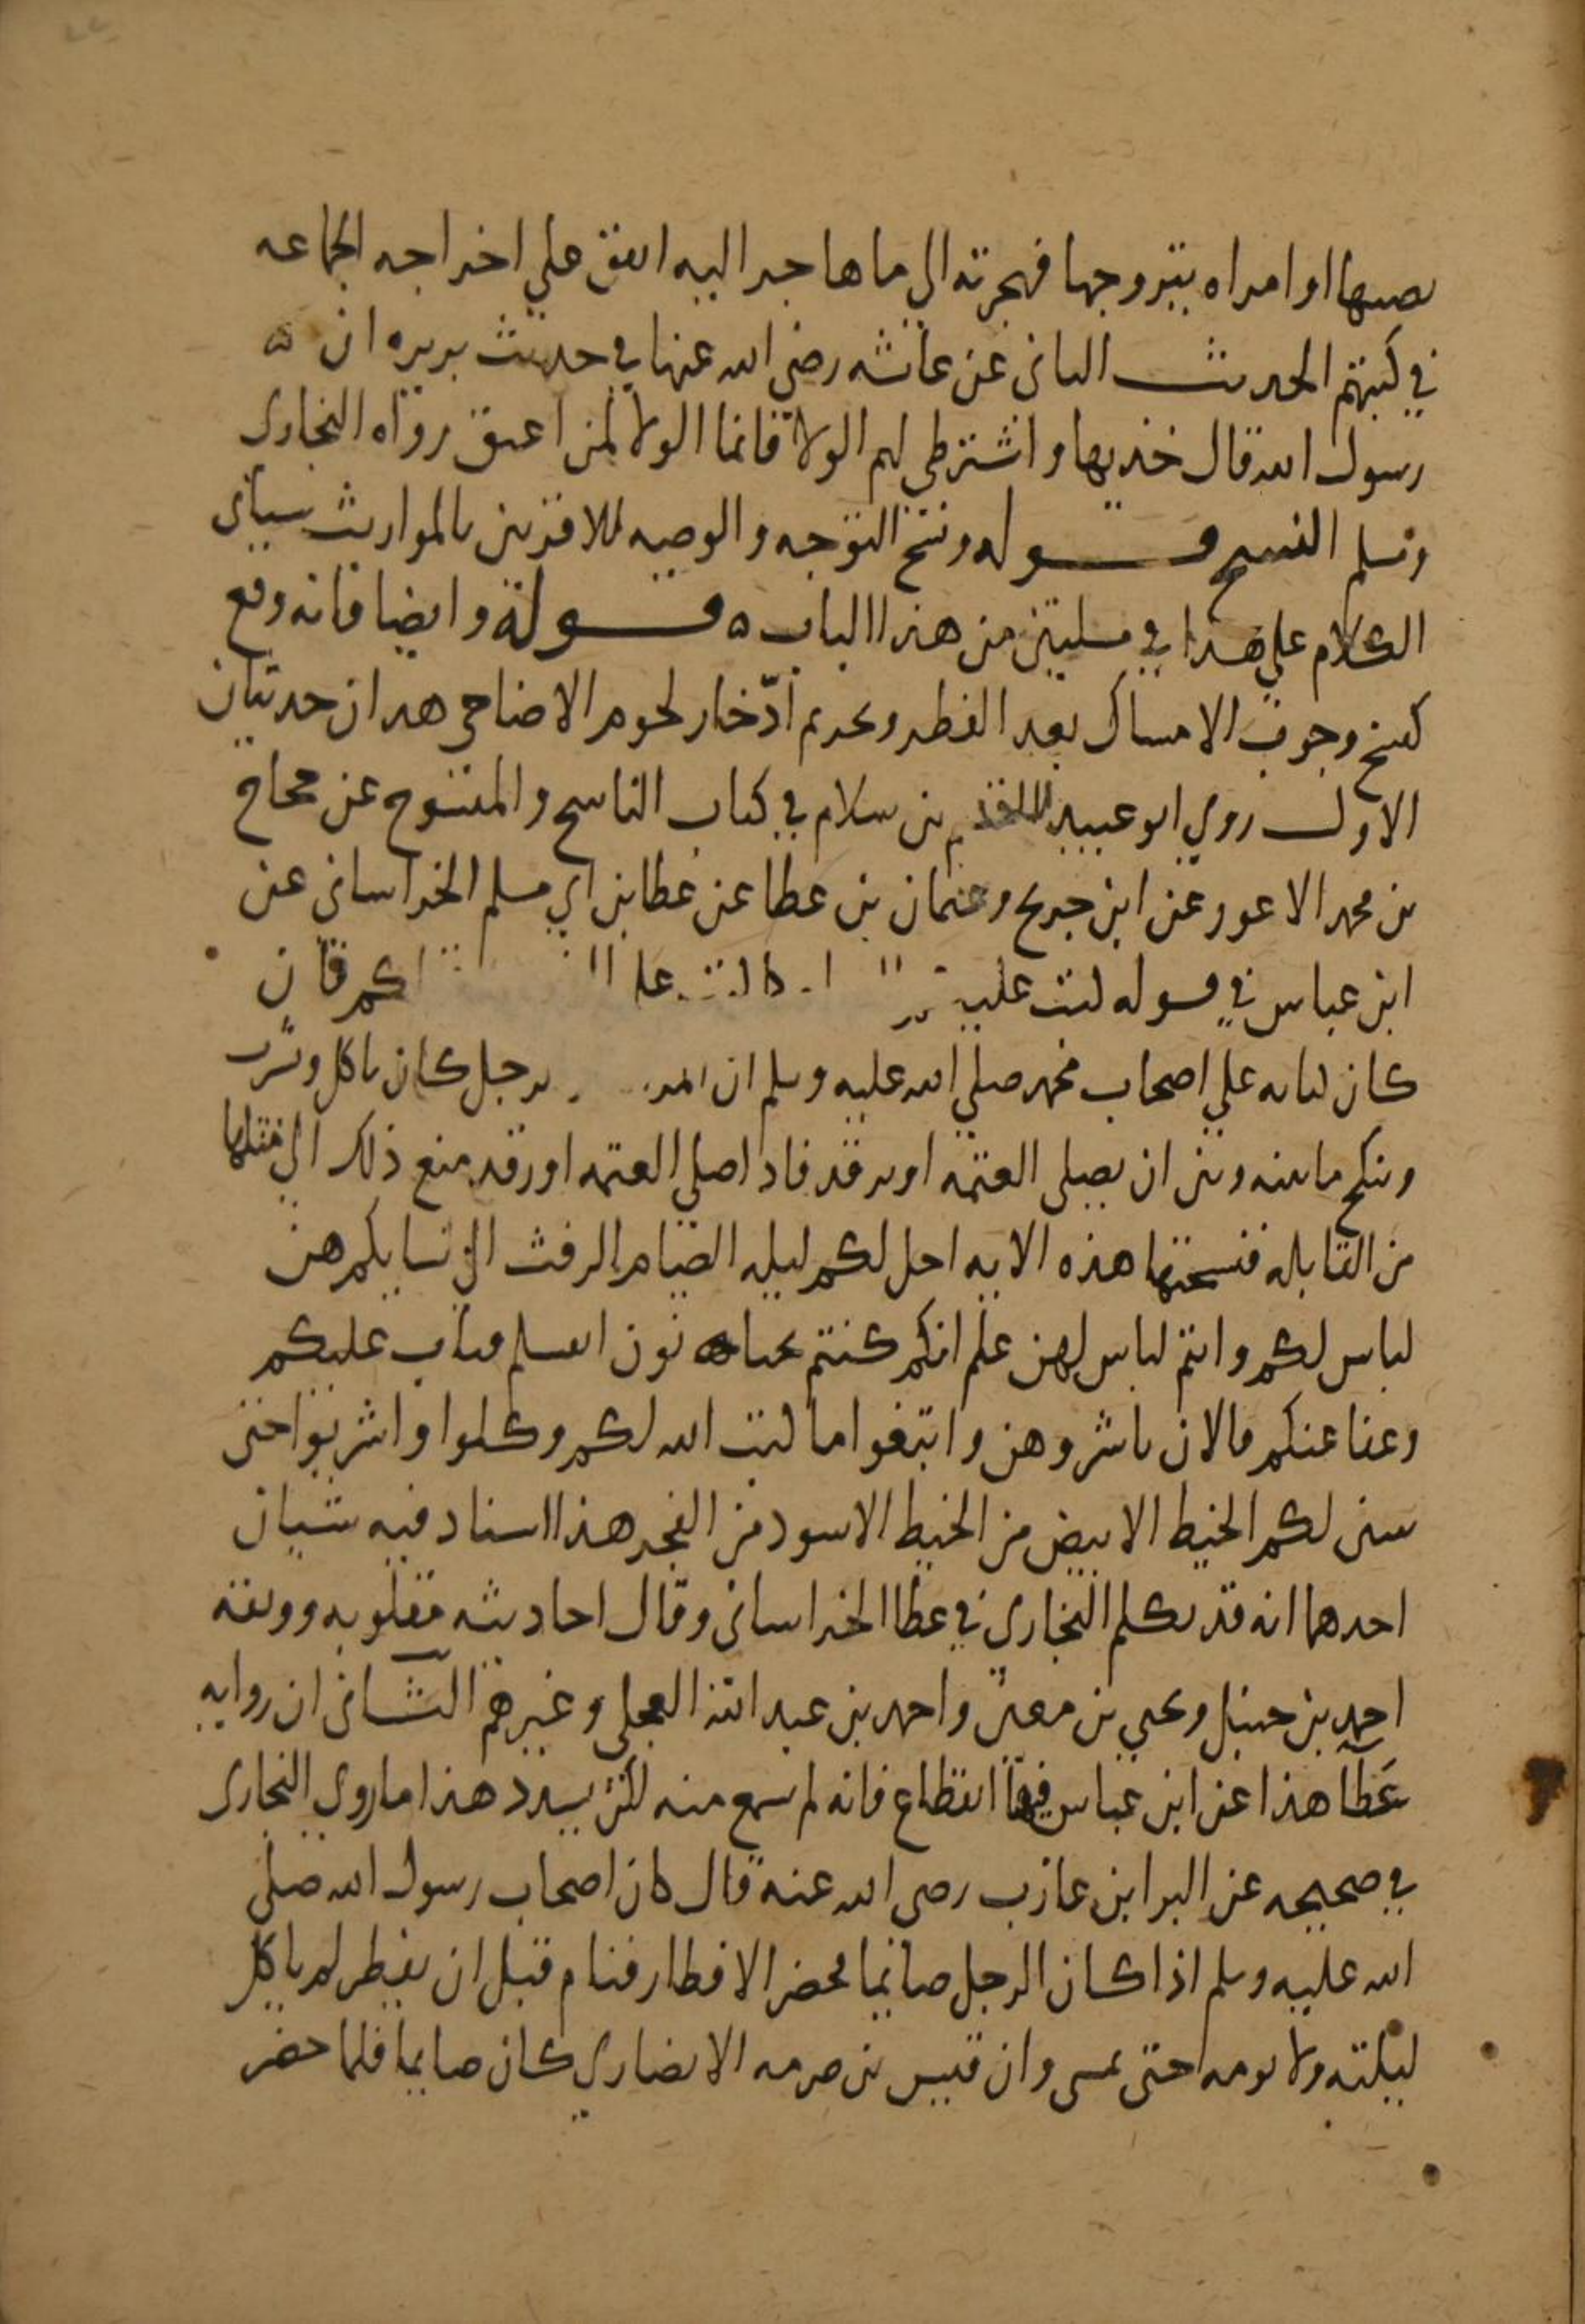 يصيبها او امراه يتزوجها فهجرته الي ما هاجر اليه اتفق علي اخراجه الجماعه
في كتبهم الحديث الثاني عن عائشه رضي الله عنها في حديث بريره ان ه
رسول الله قال خذيها واشترطي لهم الولا فانما الولا لمن اعتق رواه البخاري
ومسلم النسخ قوله ونسخ التوجه والوصيه للاقربين بالمواريث سياتي
الكلام علي هذا في مسلتين من هذا الباب ه قوله وايضا فانه وقع
كنسخ وجوب الامساك بعد الفطر وتحريم ادّخار لحوم الاضاحي هذان حديثان
الاول روي ابو عبيد القاسم بن سلام في كتاب الناسخ والمنسوخ عن حجاج
بن محمد الاعور عن ابن جريج وعثمان بن عطا عن عطا بن ابي مسلم الخراساني عن
ابن عباس في قوله كتب عليكم كما كتب علي قال
كان كتابه علي اصحاب محمد صلي الله عليه وسلم ان رجل كان ياكل ويشرب
وينكح ما بينه وبين ان يصلي العتمه او يرقد فاذا صلي العتمه او رقد منع ذلك الي مثلها
من القابله فنسختها هذه الايه احل لكم ليله الصيام الرفث الي نسايكم هن
لباس لكم وانتم لباس لهن علم انكم كنتم تختانون انفسكم فتاب عليكم
وعفا عنكم فالان باشروهن وابتغوا ما كتب الله لكم وكلوا واشربوا حتي
يتبين لكم الخيط الابيض من الخيط الاسود من الفجر هذا اسناد فيه شيان
احدهما انه قد تكلم البخاري في عطا الخراساني وقال احاديثه مقلوبه ووثقه
احمد بن حنبل ويحيي بن معين واحمد بن عبد الله العجلي وغيرهم الثاني ان روايه
عطا هذا عن ابن عباس فيها انقطاع فانه لم يسمع منه لكن يسدد هذا ما روي البخاري
في صحيحه عن البرا بن عازب رضي الله عنه قال كان اصحاب رسول الله صلي
الله عليه وسلم اذا كان الرجل صائما فحضر الافطار فنام قبل ان يفطر لم ياكل
ليلته ولا يومه حتي يمسي وان قيس بن صرمه الانصاري كان صايما فلما حضر